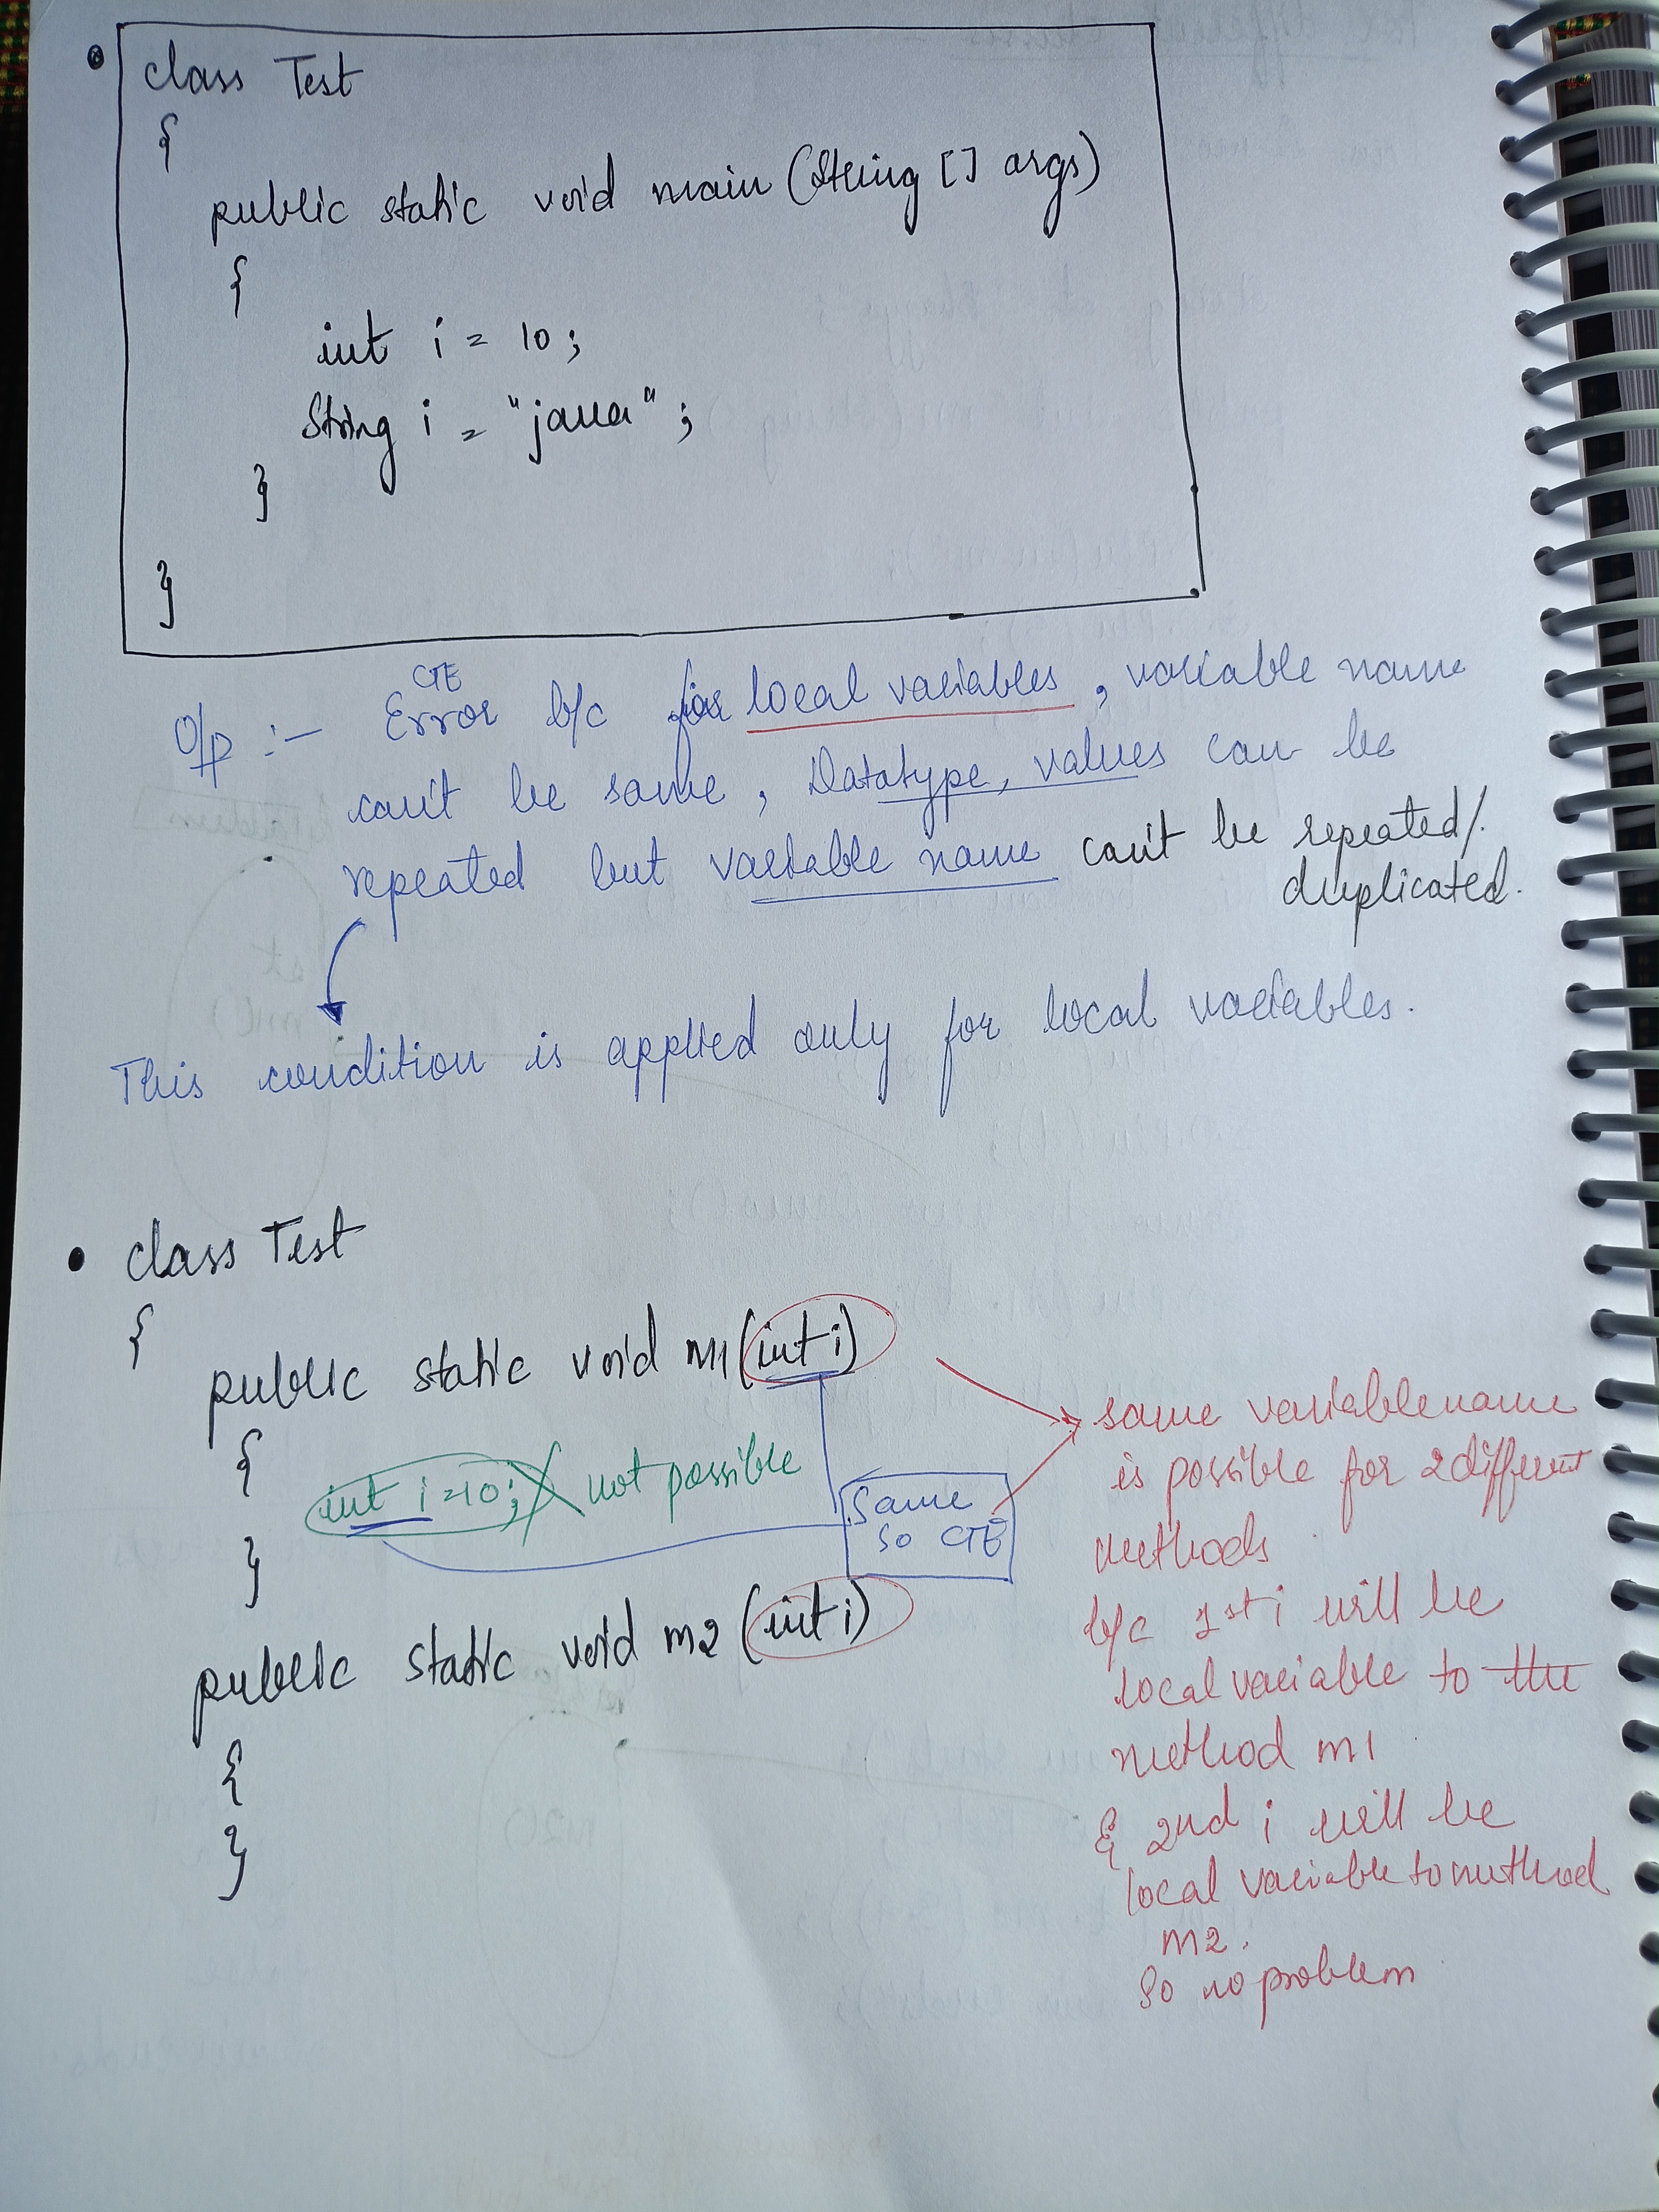 class Test
{
public static void main (String [] args)
{
int i = 10 ;
String i = "java" ;
}
}
CTE
O/p :- Error b/c for local variables , variable name
can't be same , Datatype, values can be
repeated but variable name can't be repeated/.
duplicated.
This condition is applied only for local variables.
class Test
{
public static void m1 (int i)
{
int i=10; X not possible
}
Same
So CTE
public static void m2 (int i)
{
}
same variable name
is possible for 2 different
methods
b/c 1st i will be
local variable to the
method m1
& 2nd i will be
local variable to method
m2.
So no problem